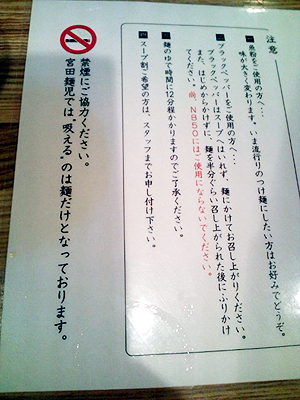 注意
一 魚粉をご使用の方へ…
味が大きく変わります。いま流行りのつけ麺にしたい方はお好みでどうぞ。
ブラックペッパーをご使用の方へ…
ブラックペッパーはスープへはいれず、麺にかけてお召し上がりください。
また、はじめからかけずに、麺を半分ぐらい召し上がられた後にふりかけ
NB50にはご使用にならないでください。
麺のゆで時間に12分程かかりますのでご了承ください。
四 スープ割ご希望の方は、スタッフまでお申し付け下さい。
禁煙にご協力ください。
宮田麺児では“吸える”のは麺だけとなっております。